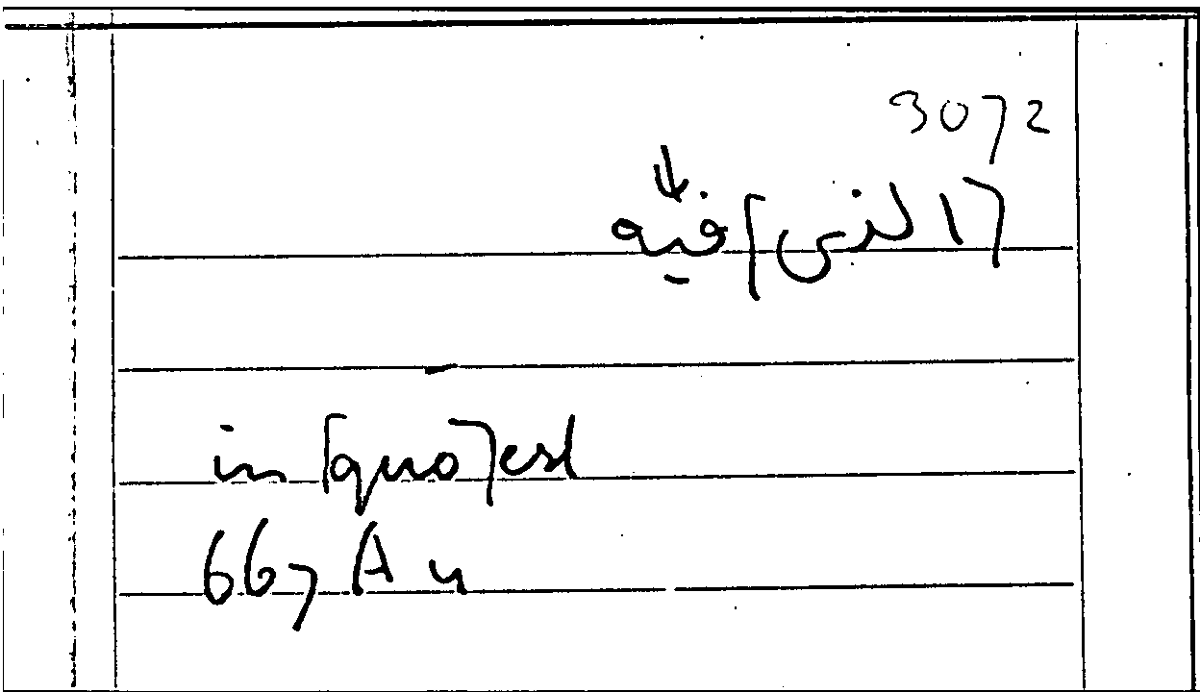 3072
[الذى] فيه
in [quo] est
667 A 4